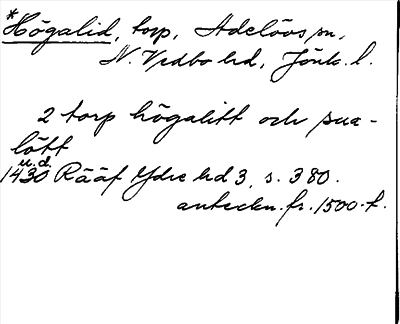 *Högalid, torp, Adelövs sn,
N. Vedbo hd, Jönk. l.
2 torp högalitt och sua-
lött
u.d.
1430 Rääf Ydre hd 3, s. 380.
anteckn. fr. 1500-t.